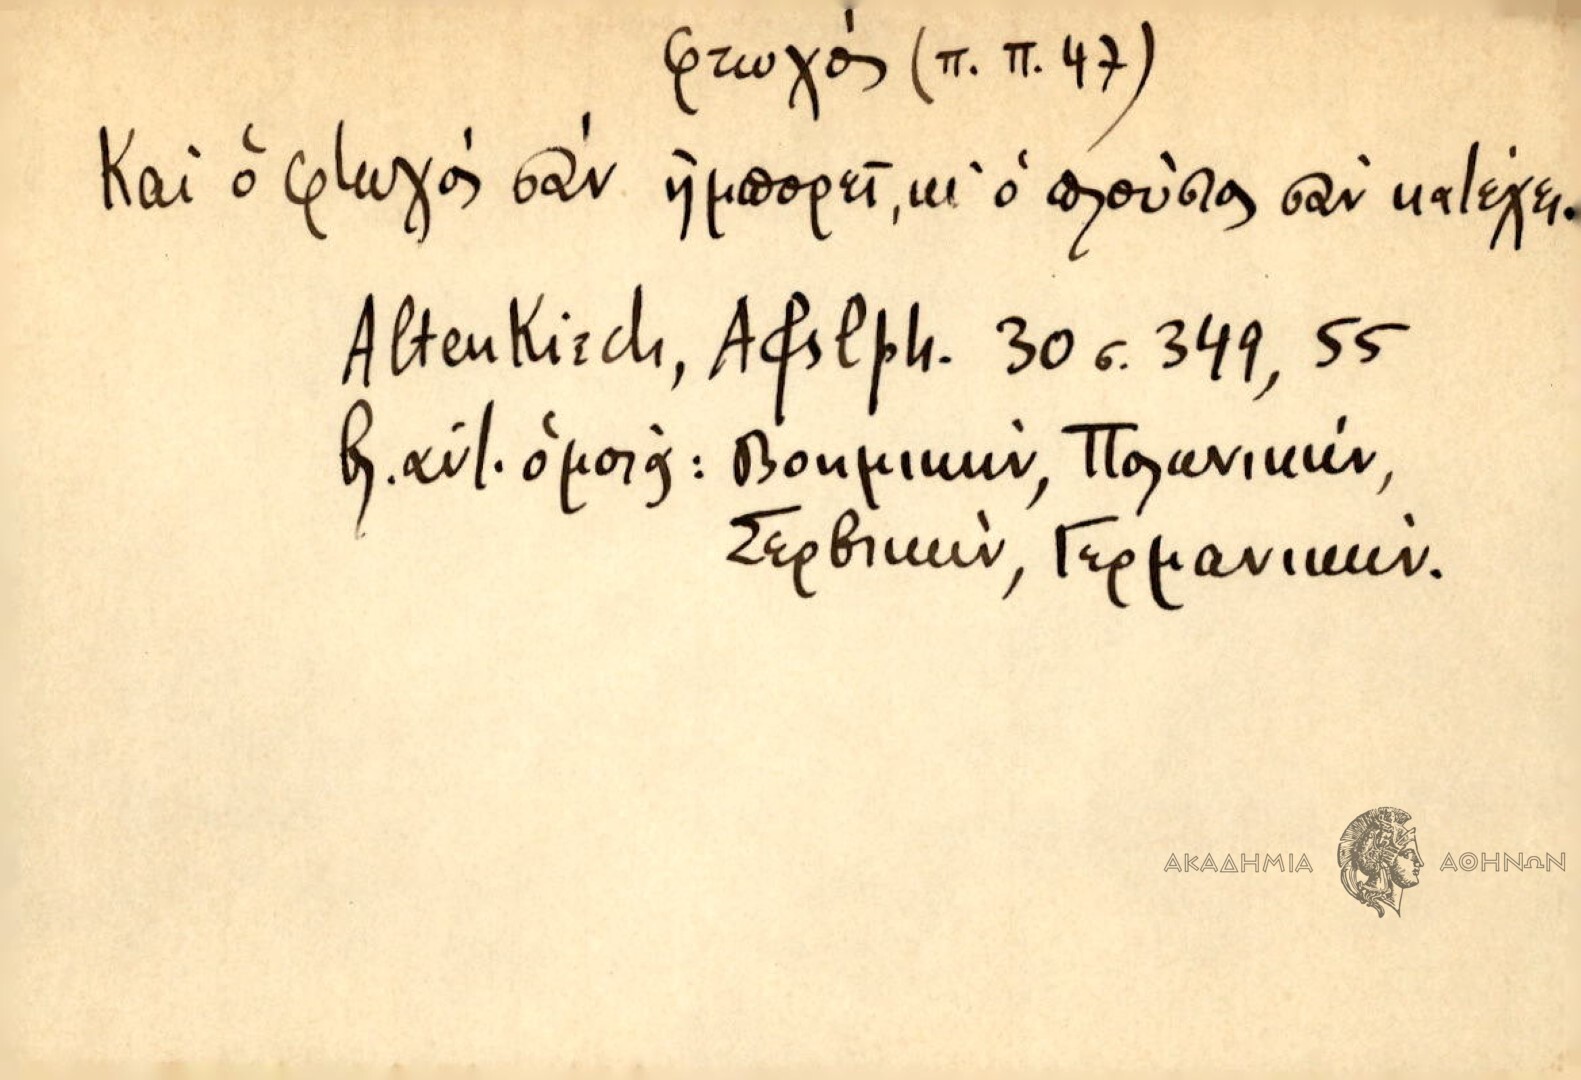 φτωχός (π. π. 47)
Καὶ ὁ φτωχός σὰν ἠμπορεῖ, κι ὁ πλούσιος σὰν κατέχει.
Altenkirch, Afslph. 30 σ. 349, 55
βλ. αὐτ. ὁμοία: Βοημικήν, Πολωνικήν,
Σερβικήν, Γερμανικήν.
ΑΚΑΔΗΜΙΑ ΑΘΗΝΩΝ